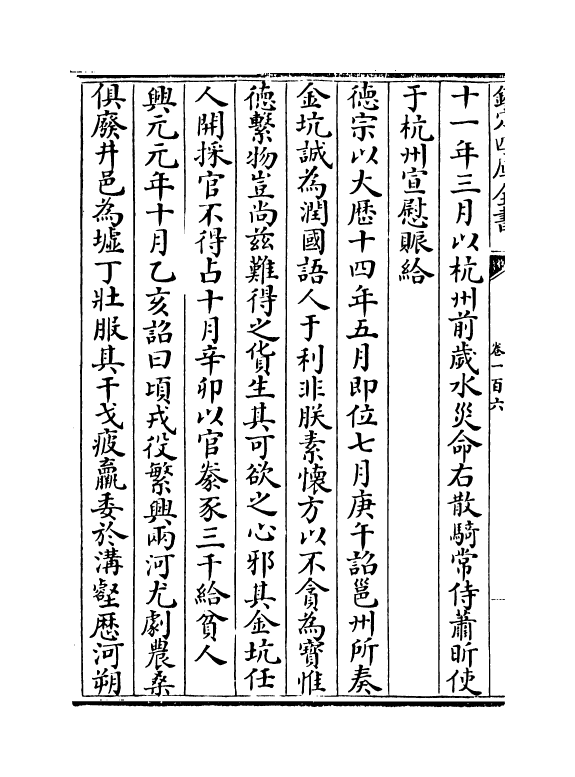 欽定四庫全書
卷一百六
十一年三月以杭州前歲水災命右散騎常侍蕭昕使
于杭州宣慰賑給
德宗以大歴十四年五月即位七月庚午詔邕州所奏
金坑誠為潤國語人于利非朕素懷方以不貪為寶惟
德繫物豈尚兹難得之貨生其可欲之心邪其金坑任
人開採官不得占十月辛卯以官豢豕三千給貧人
興元元年十月乙亥詔曰頃戎役繁興兩河尤劇農桑
俱廢井邑為墟丁壯服其干戈疲羸委於溝壑歴河朔